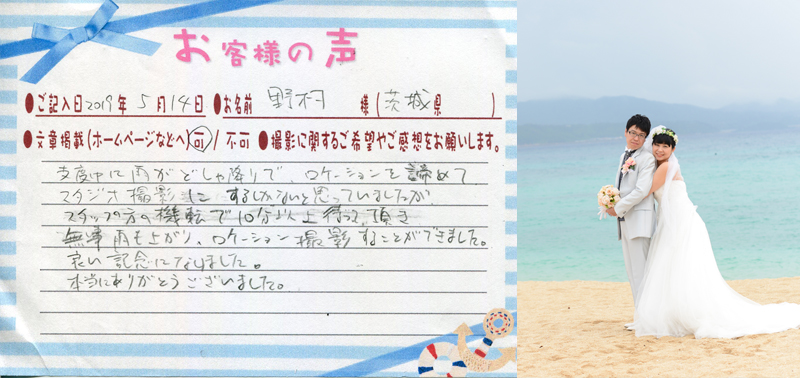 お客様の声
●ご記入日2019年5月14日 ●お名前 野村 様(茨城県 )
●文章掲載(ホームページなどへ)可/不可 ●撮影に関するご希望やご感想をお願いします。
支度中に雨がどしゃ降りで、ロケーションを諦めて
スタジオ撮影にするしかないと思っていましたが
スタッフの方の機転で10分以上待って頂き
無事雨も上がり、ロケーション撮影することができました。
良い記念になりました。
本当にありがとうございました。